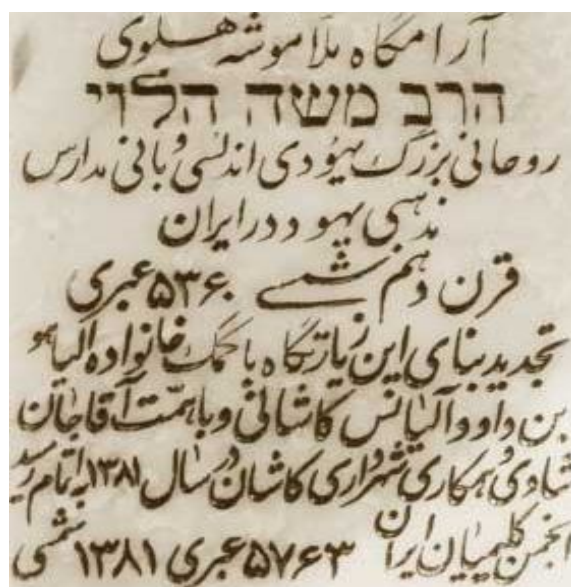 آرامگاه ملا موشه هلوی
הרב משה הלוי
روحانی بزرگ یهودی اندلسی و بانی مدارس
مذهبی یهود در ایران
قرن دهم شمسی ۵۳۶۰ عبری
تجدید بنای این زیارتگاه با کمک خانواده الیاهو
بن داود آلیانس کاشانی و با همت آقاجان
شادی و همکاری شهرداری کاشان در سال ۱۳۸۱ به اتمام رسید
انجمن کلیمیان ایران ۵۷۶۳ عبری ۱۳۸۱ شمسی